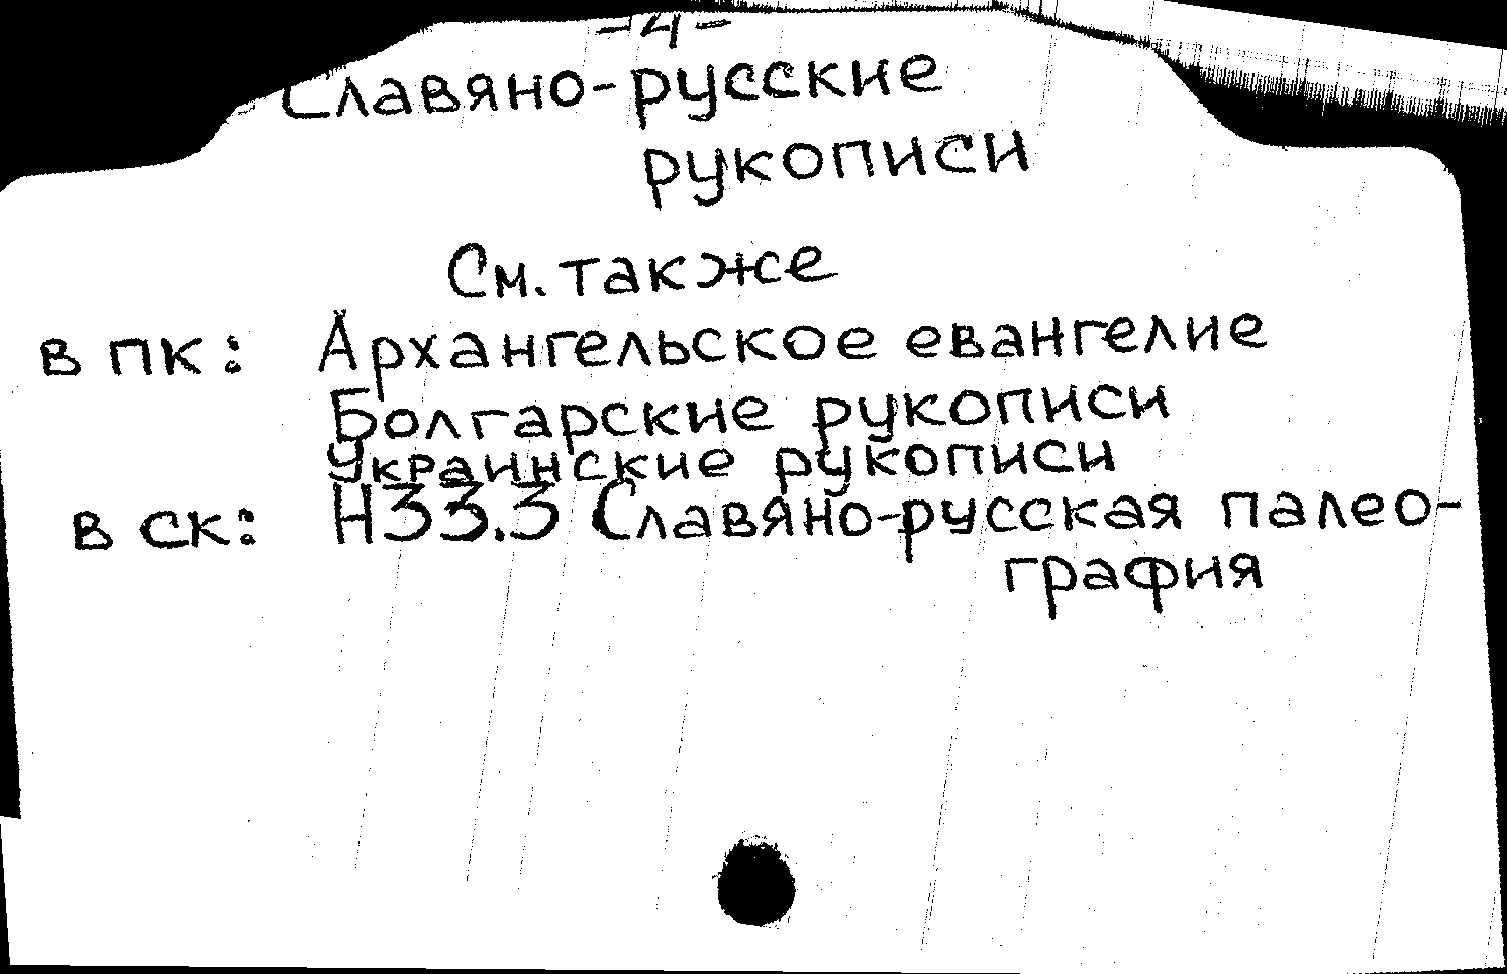 -4-
Славяно-русские
рукописи
См. также
в пк: Архангельское евангелие
Болгарские рукописи
Украинские рукописи
в ск: Н33.3 Славяно-русская палео-
графия